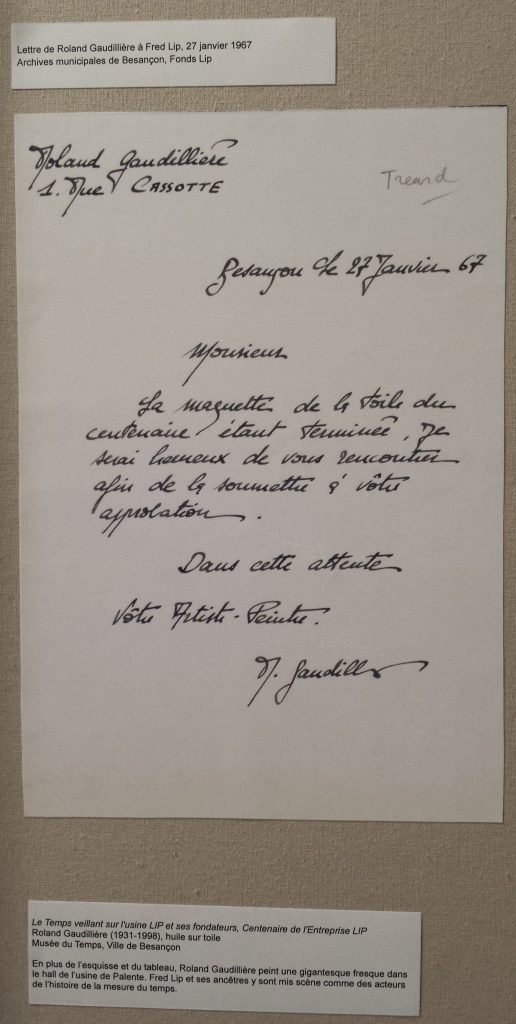 Lettre de Roland Gaudillière à Fred Lip, 27 janvier 1967
Archives municipales de Besançon, Fonds Lip
Roland Gaudillière
1. Rue CASSOTTE
Treand
Besançon le 27 Janvier 67
Monsieur
La maquette de la toile du
centenaire étant terminée, je
serai heureux de vous rencontrer
afin de la soumettre à vôtre
approbation.
Dans cette attente
Vôtre Artiste-Peintre.
R. Gaudill
Le Temps veillant sur l'usine LIP et ses fondateurs, Centenaire de l'Entreprise LIP
Roland Gaudillière (1931-1998), huile sur toile
Musée du Temps, Ville de Besançon
En plus de l'esquisse et du tableau, Roland Gaudillière peint une gigantesque fresque dans
le hall de l'usine de Palente. Fred Lip et ses ancêtres y sont mis scène comme des acteurs
de l'histoire de la mesure du temps.